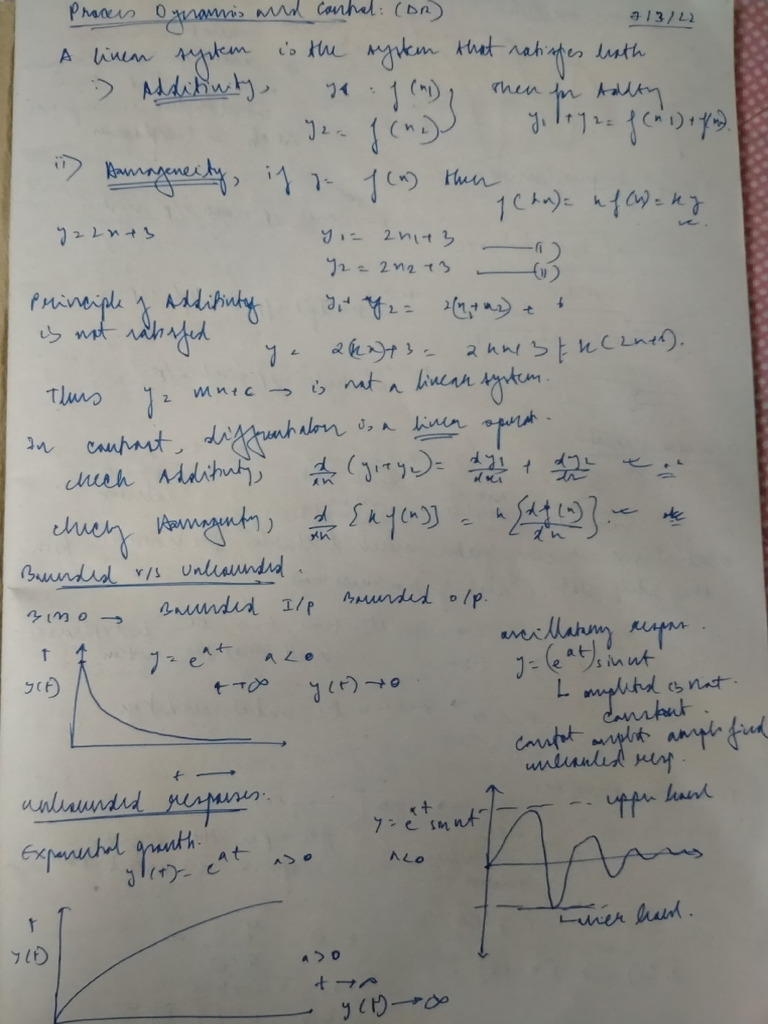 Process Dynamics and Control: (DR) 7/3/22
A linear system is the system that satisfies both
i) Additivity, y1 = f(x1) } then for Addity
y2 = f(x2) } y1 + y2 = f(x1) + f(x2).
ii) Homogeneity, if y = f(x) then
f(kx) = k f(x) = ky
y = 2x + 3 y1 = 2x1 + 3 —(i)
y2 = 2x2 + 3 —(ii)
Principle of Additivity y1 + y2 = 2(x1+x2) + 6
is not satisfied
y = 2(kx)+3 = 2kx+3 ≠ k(2x+6).
Thus y = mx+c → is not a linear system.
In contrast, differentiation is a linear operat.
check Additivity, d/dx (y1+y2) = dy1/dx1 + dy2/dx
check Homogenity, d/dx {k f(x)} = k {df(x)/dx}.
Bounded v/s unbounded.
BIBO → Bounded I/p Bounded o/p.
↑ y(t) y = e^at a<0
t→∞ y(t)→0
t →
oscillatory respon.
y = (e^at) sin wt
amplitud is not
constant.
constat amplit amplified
unbounded resp.
unbounded responses:
Exponential growth.
y(t) = e^at a>0
y = e^at sin wt
a<0
upper bound
lower bound.
↑ y(t)
a>0
t→∞
y(t)→∞